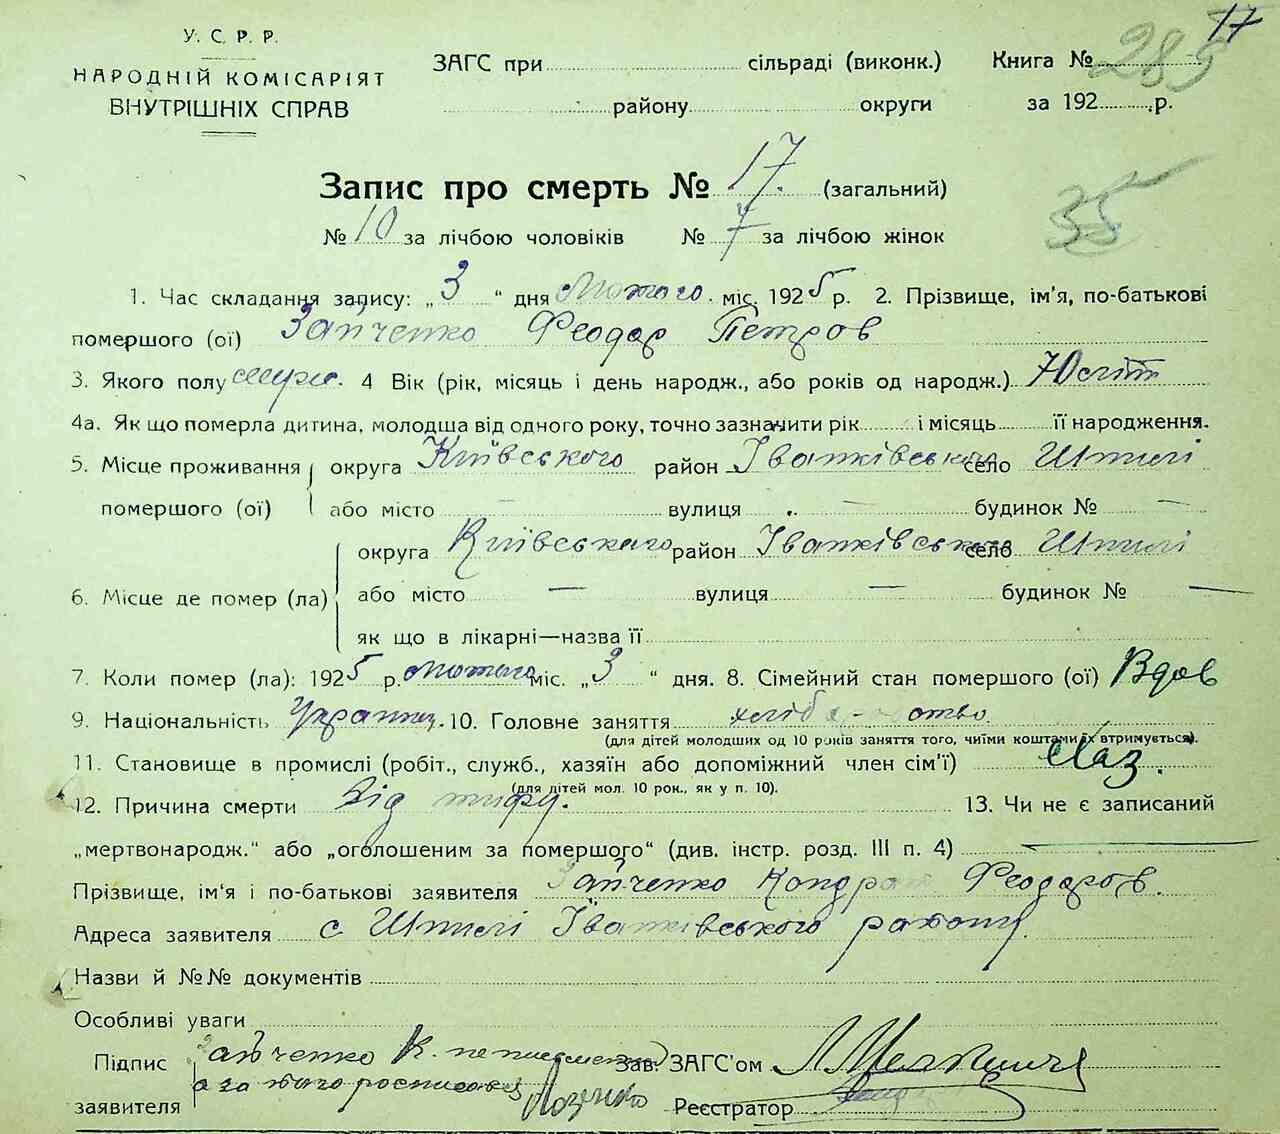 17
У. С. Р. Р.
НАРОДНІЙ КОМІСАРІЯТ
ВНУТРІШНІХ СПРАВ
ЗАГС при сільраді (виконк.)
району округи
Книга № 285
за 192 р.
Запис про смерть № 17. (загальний)
№ 10 за лічбою чоловіків № 7 за лічбою жінок
35
1. Час складання запису: „3“ дня Лютого міс. 1925 р. 2. Прізвище, ім'я, по-батькові
помершого (ої) Зайченко Феодор Петров
3. Якого полу 4 Вік (рік, місяць і день народж., або років од народж.) 70 літ
4а. Як що померла дитина, молодша від одного року, точно зазначити рік і місяць її народження.
5. Місце проживання помершого (ої) округа Київського район Іванківського село Шпилі
або місто — вулиця — будинок № —
6. Місце де помер (ла) округа Київського район Іванківського село Шпилі
або місто — вулиця — будинок № —
як що в лікарні—назва її
7. Коли помер (ла): 1925 р. Лютого міс. „3“ дня. 8. Сімейний стан помершого (ої) Вдов
9. Національність Украінец. 10. Головне заняття хліборобство
(для дітей молодших од 10 років заняття того, чиїми коштами їх втримується).
11. Становище в промислі (робіт., служб., хазяїн або допоміжний член сім'ї) Хаз.
(для дітей мол. 10 рок., як у п. 10).
12. Причина смерти Від тифу. 13. Чи не є записаний
„мертвонародж.“ або „оголошеним за помершого“ (див. інстр. розд. III п. 4) —
Прізвище, ім'я і по-батькові заявителя Зайченко Кондрат Феодоров.
Адреса заявителя с Шпилі Іванківського району
Назви й №№ документів
Особливі уваги
Підпис заявителя Зайченко К. неписьменний
а за нього росписався
Зав. ЗАГС'ом
Реєстратор